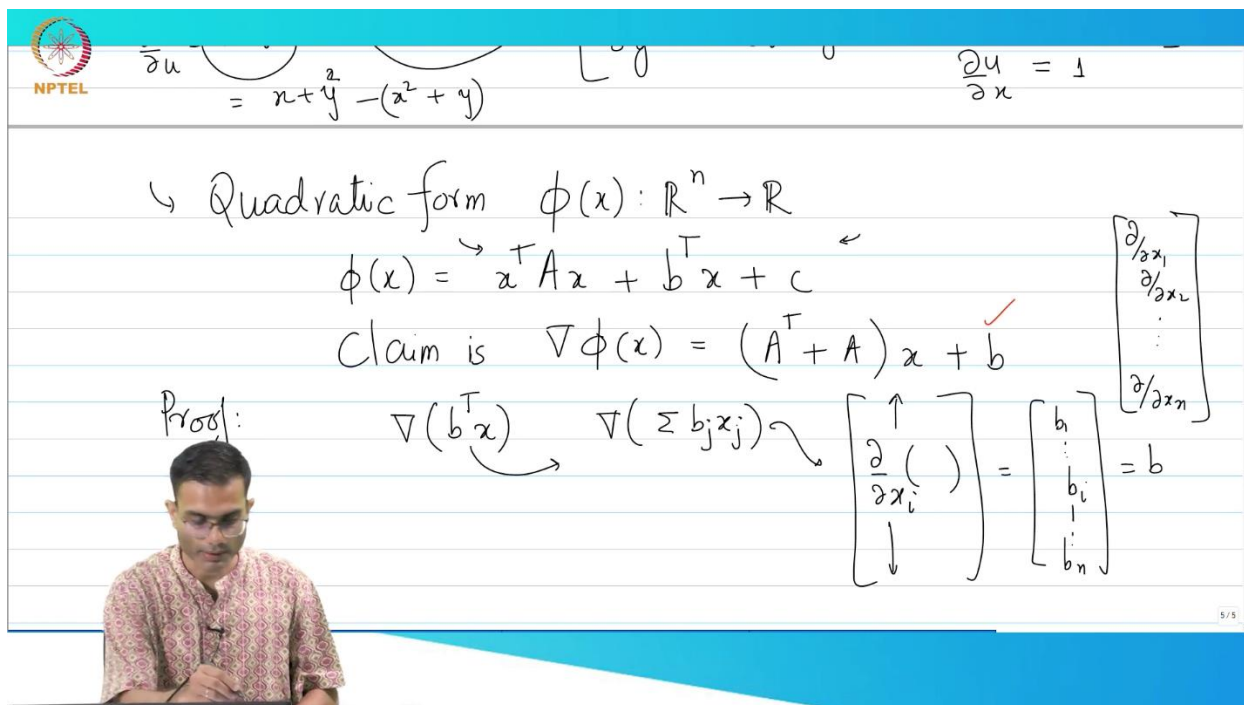 NPTEL
∂u
= x + y² − (x² + y)
∂u/∂x = 1
↳ Quadratic form ϕ(x) : ℝⁿ → ℝ
ϕ(x) = xᵀAx + bᵀx + c
Claim is ∇ϕ(x) = (Aᵀ + A)x + b
[∂/∂x₁ ∂/∂x₂ ⋮ ∂/∂xₙ]
Proof: ∇(bᵀx) ∇(Σ bⱼxⱼ) [↑ ∂/∂xᵢ( ) ↓] = [b₁ ⋮ bᵢ ⋮ bₙ] = b
5/5